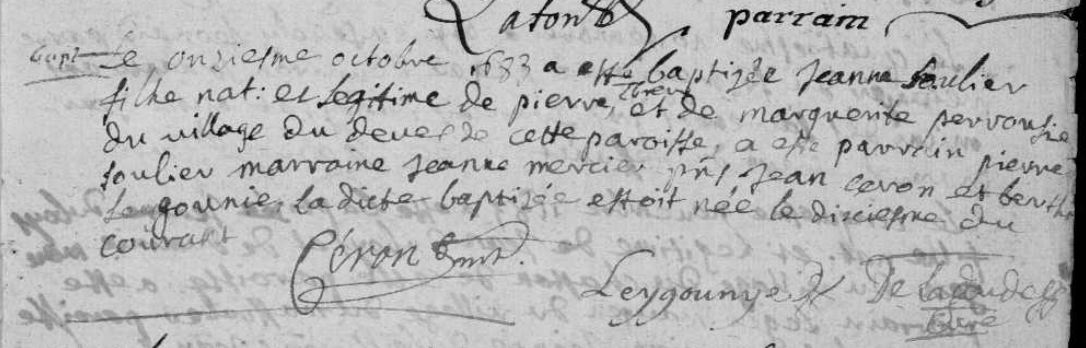 Latour parrain
bapt Le onziesme octobre 1683 a esté baptizée Jeanne soulier
fille nat: et Legitime de pierre, et de marguerite perrousie
du village du deves de cette paroisse, a esté parrain pierre
soulier marraine Jeanne mercier pnt Jean ceron et berth
Leygounie Ladicte baptizée estoit née le disciesme du
courant
Céron pnt. Leygounye De Lagoudes
curé